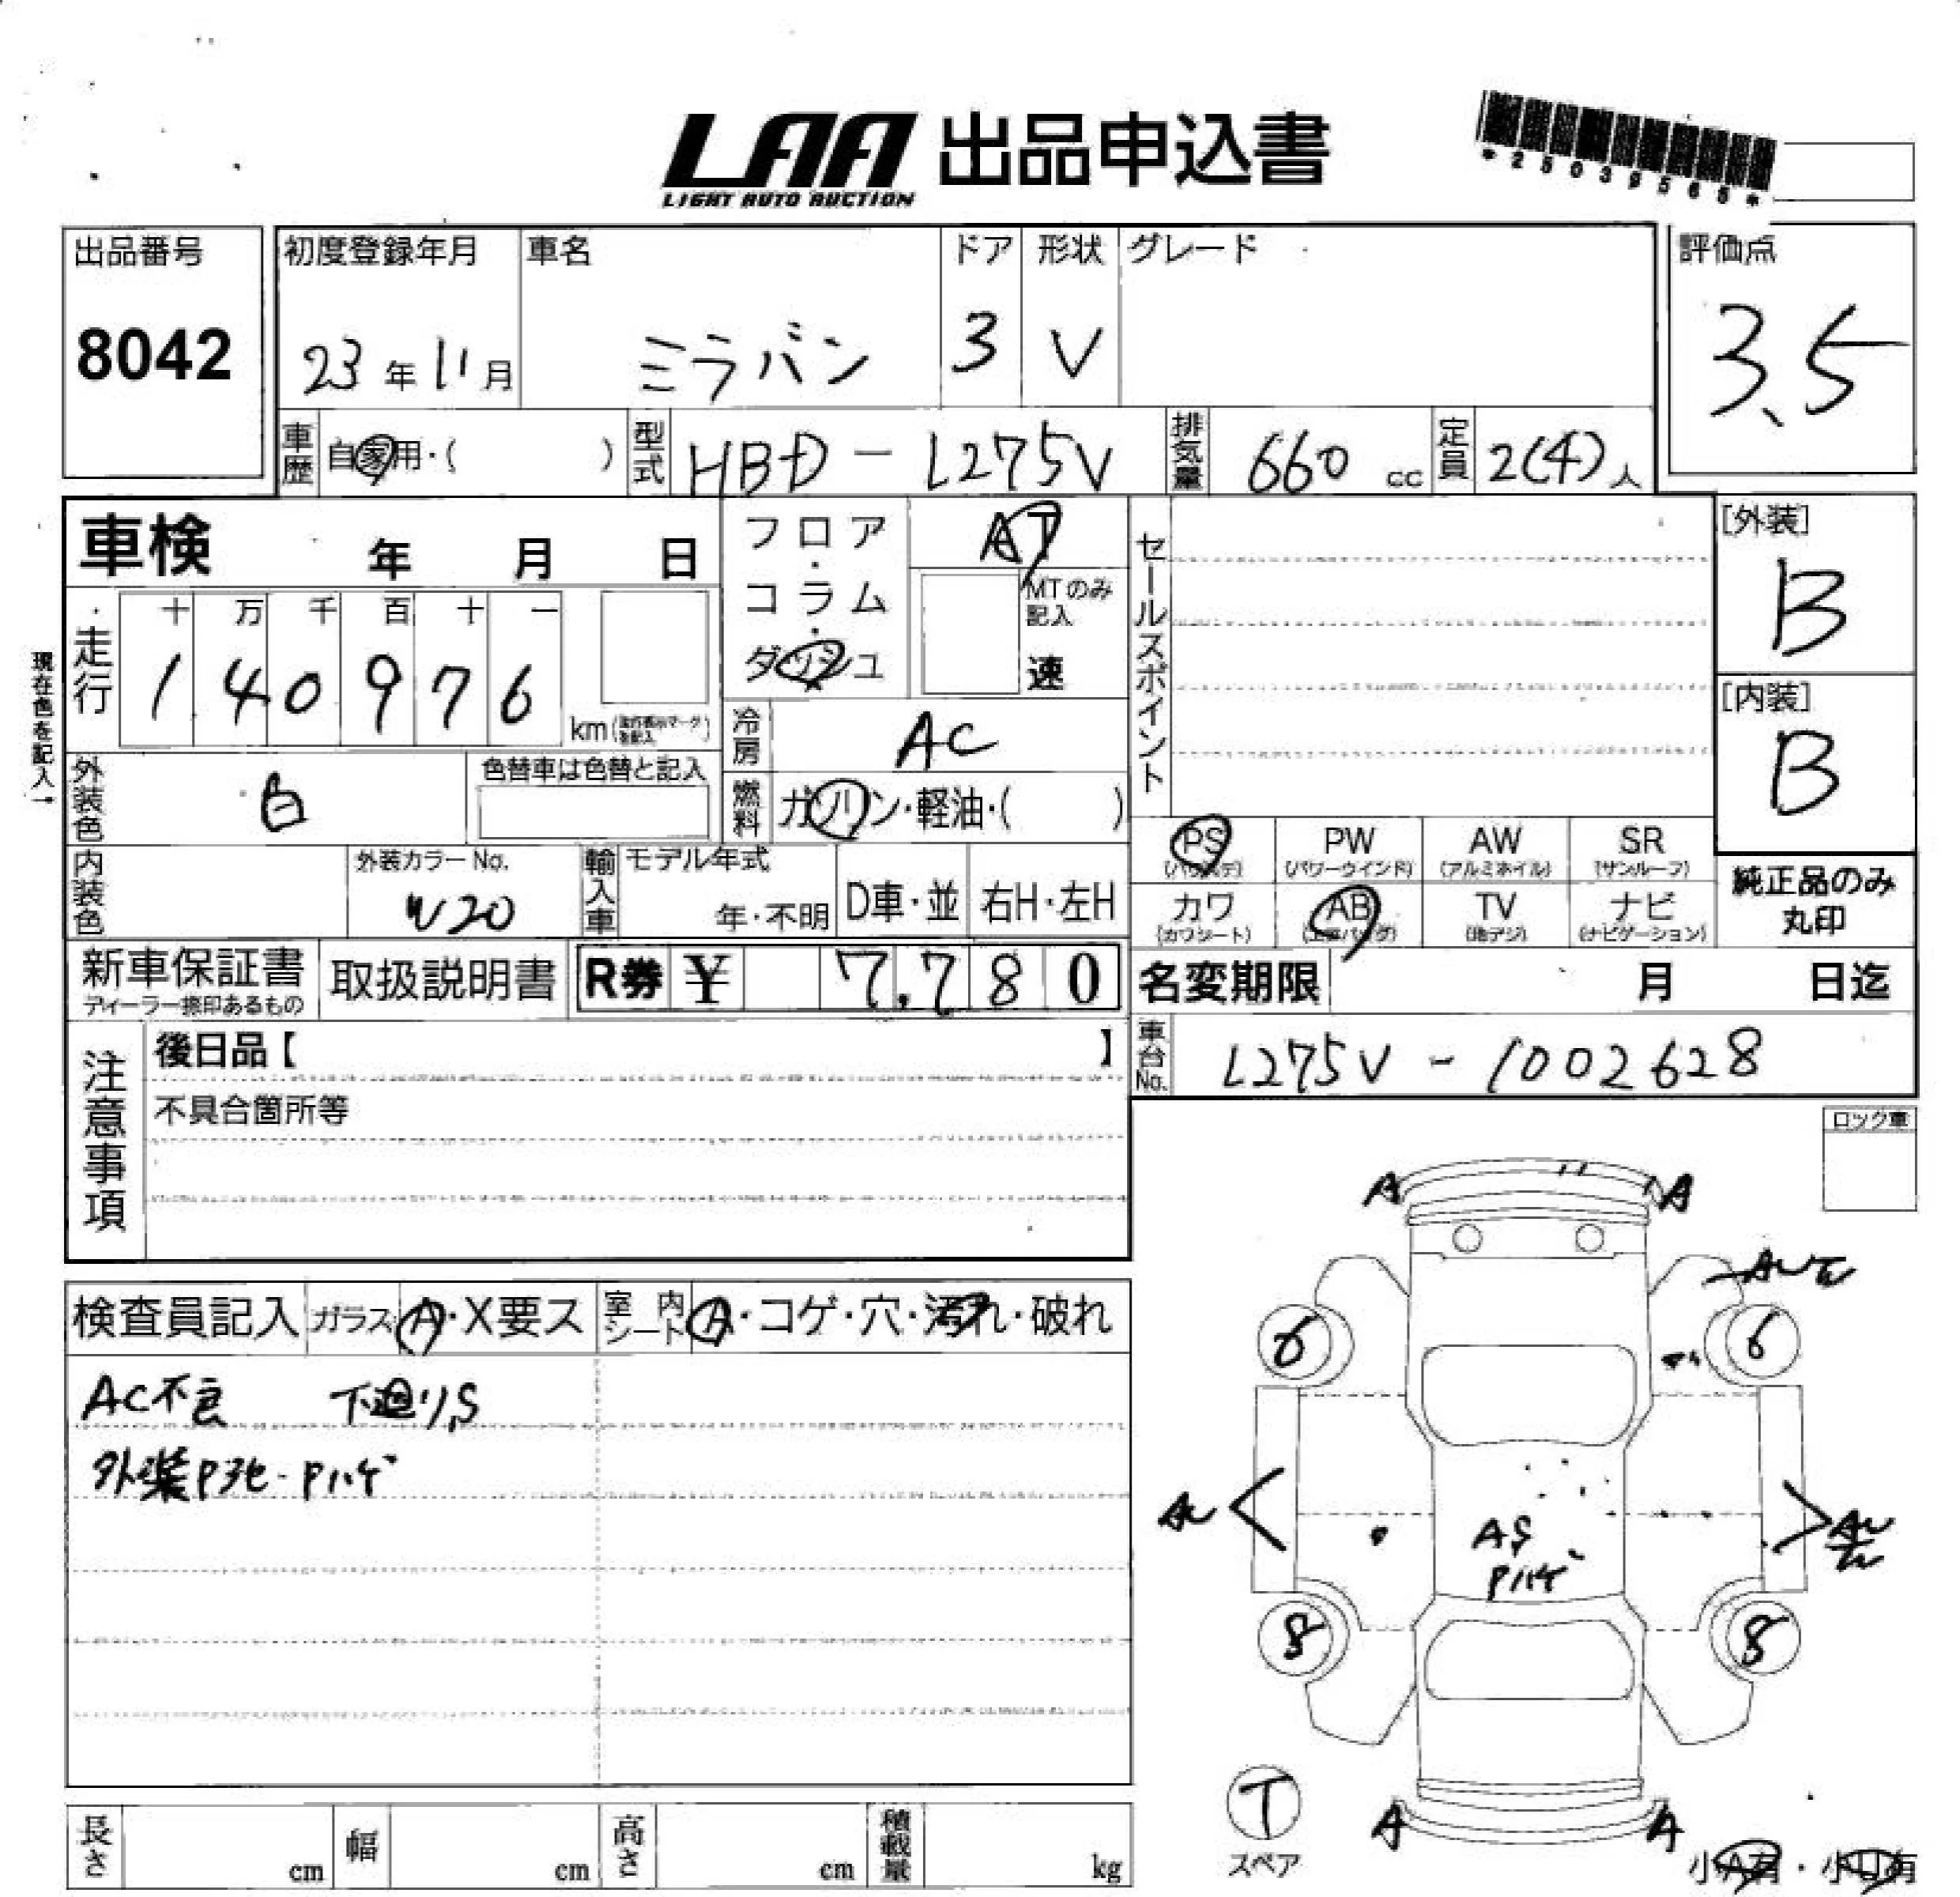 LAA 出品申込書
LIGHT AUTO AUCTION
*25039565*
出品番号
8042
初度登録年月
23年11月
車名
ミラバン
ドア
3
形状
V
グレード
評価点
3.5
車歴
自家用・( )
型式
HBD-L275V
排気量
660 cc
定員
2(4)人
車検 年 月 日
現在色を記入→
走行
十 万 千 百 十 一
1 4 0 9 7 6
km
フロア・コラム・ダッシュ
AT
MTのみ記入
速
冷房
AC
燃料
ガソリン・軽油・( )
セールスポイント
[外装]
B
[内装]
B
外装色
白
色替車は色替と記入
内装色
外装カラーNo.
W20
輸入車
モデル年式
年・不明
D車・並
右H・左H
PS
(パワステ)
PW
(パワーウインド)
AW
(アルミホイル)
SR
(サンルーフ)
カワ
(カワシート)
AB
TV
(地デジ)
ナビ
(ナビゲーション)
純正品のみ
丸印
新車保証書
ディーラー捺印あるもの
取扱説明書
R券 ¥ 7.780
名変期限 月 日迄
車台No.
L275V-1002628
注意事項
後日品【 】
不具合箇所等
ロック車
検査員記入
ガラス
A・X要ス
室内シート
A・コゲ・穴・汚れ・破れ
AC不良 下廻りS
外装P劣化・Pハゲ
A A
6 6
AS
Pハゲ
8 8
T
スペア
A A
小A有・小U有
長さ cm
幅 cm
高さ cm
積載量 kg